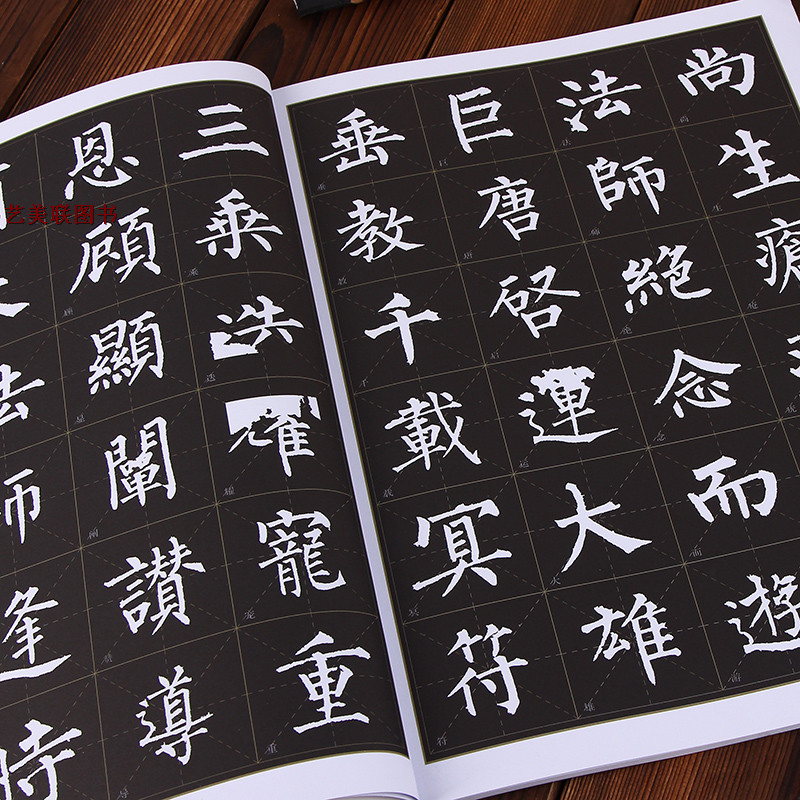 尚生
法師絕念而遊
巨唐啓運大雄
垂教千載冥符
三乘迭耀寵重
恩顧顯闡讚導
逢時
艺美联图书